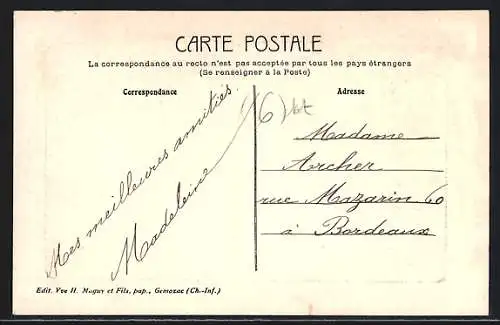 CARTE POSTALE
La correspondance au recto n'est pas acceptée par tous les pays étrangers
(Se renseigner à la Poste)
Correspondance
Adresse
Mes meilleures amitiés.
Madeleine
Madame
Archer
rue Mazarin 60
à Bordeaux
Edit. Vve H. et Fils, pap., Gemozac (Ch.-Inf.)